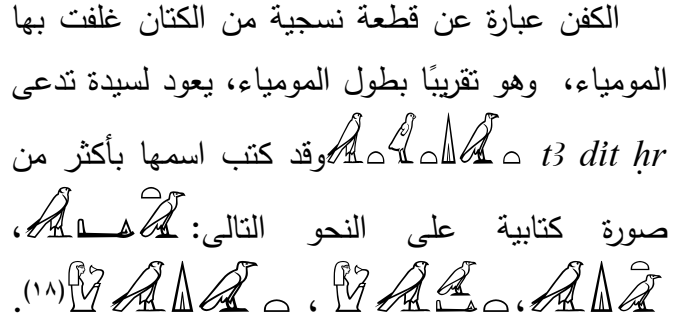 الكفن عبارة عن قطعة نسجية من الكتان غلفت بها
المومياء، وهو تقريبًا بطول المومياء، يعود لسيدة تدعى
tꜣ dỉt ḥr وقد كتب اسمها بأكثر من
صورة كتابية على النحو التالى: ،
، ، (١٨).